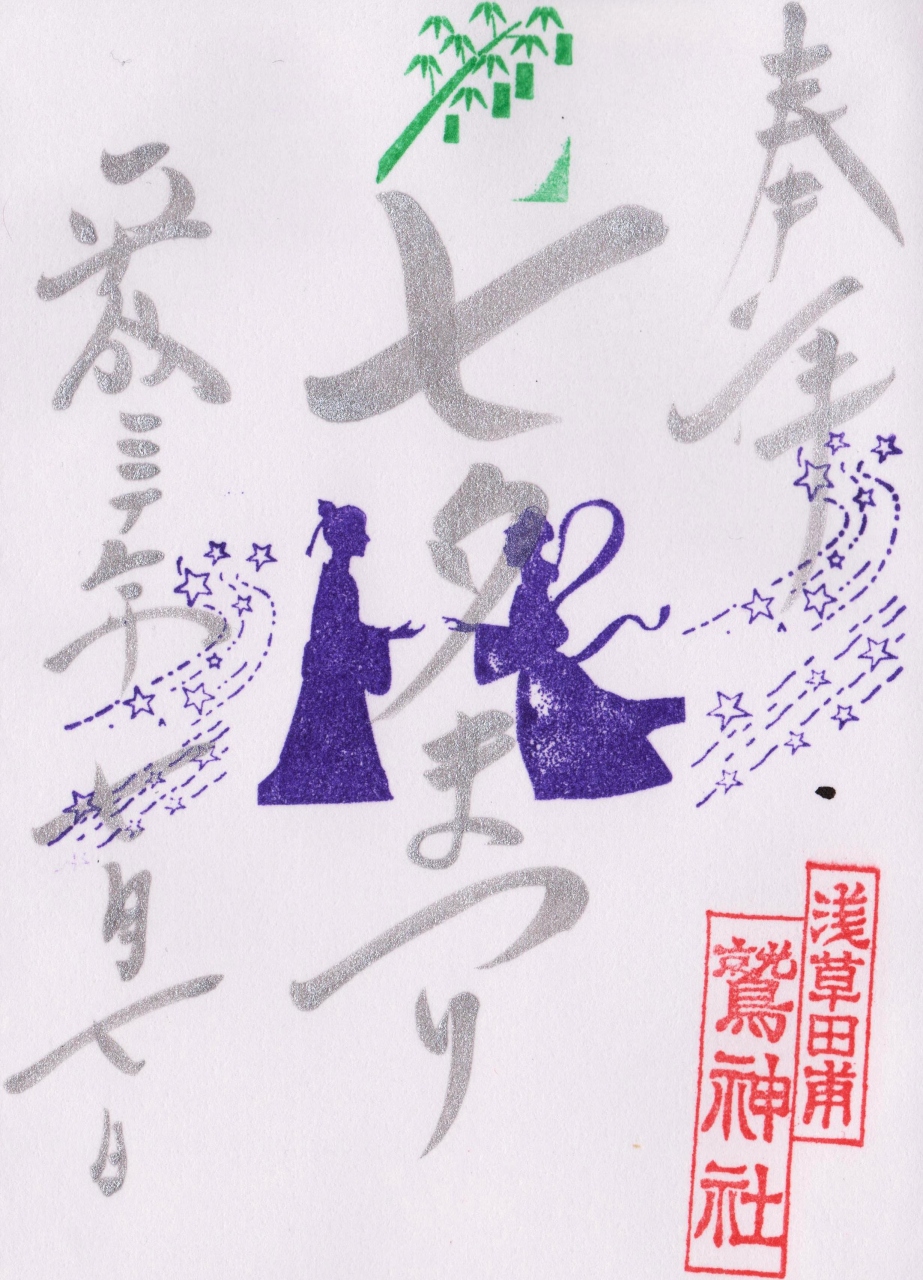 奉拝
浅草田甫
鷲神社
七夕まつり
平成三十年七月七日